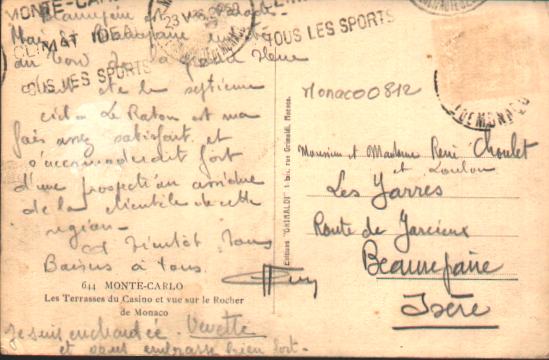 MONTE-CARLO
TOUS LES SPORTS
CLIMAT IDEAL
TOUS LES SPORTS
Mais
au bord de la grande bleue
était le septième
ciel. Le Raton est ma
fois assez satisfait et
s'accommoderait fort
d'une prospection assidue
de la clientèle de cette
région.
A bientôt. Tous
Baisers à tous.
644 MONTE-CARLO
Les Terrasses du Casino et vue sur le Rocher
de Monaco
Je suis enchantée. Venette
et vous embrasse bien fort.
Editions "GRIMALDI" 1 bis, rue Grimaldi, Monaco.
Monaco0812
DE MONACO
Monsieur et Madame René Choulet
et Loulou
Les Yarres
Route de Jarcieux
Beaurepaire
Isère